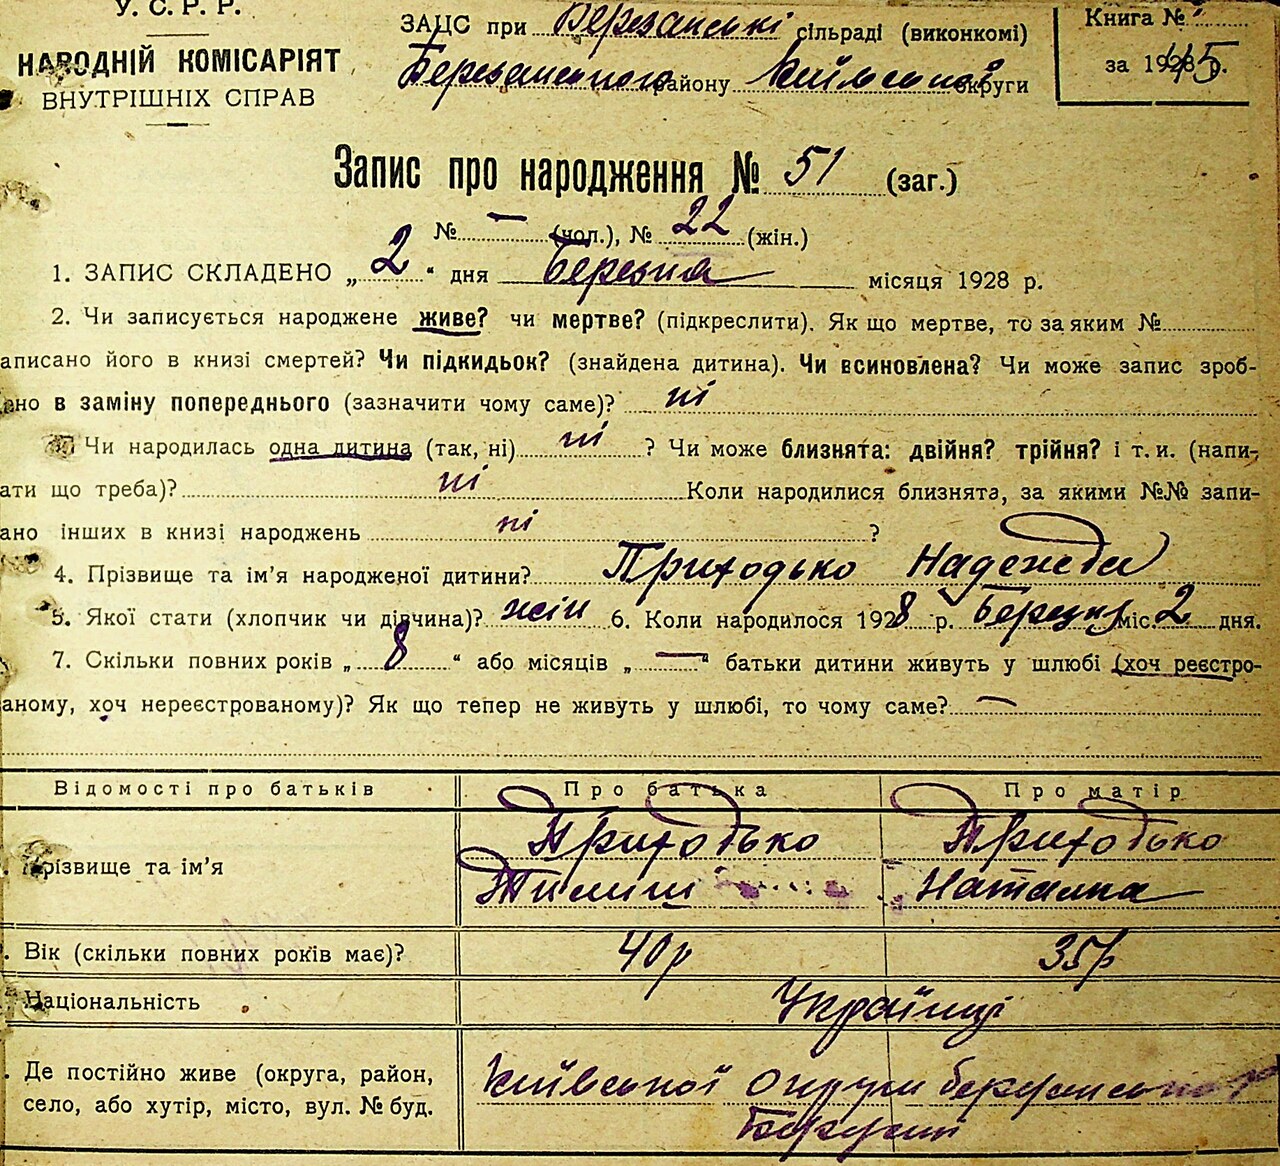 У. С. Р. Р.
НАРОДНІЙ КОМІСАРІЯТ
ВНУТРІШНІХ СПРАВ
ЗАЦС при Березанські сільраді (виконкомі)
Березанського району Київської округи
Книга №
за 1928 р. 45
Запис про народження № 51 (заг.)
№ — (чол.), № 22 (жін.)
1. ЗАПИС СКЛАДЕНО „ 2 “ дня Березня місяця 1928 р.
2. Чи записується народжене живе? чи мертве? (підкреслити). Як що мертве, то за яким №
аписано його в книзі смертей? Чи підкидьок? (знайдена дитина). Чи всиновлена? Чи може запис зроб-
ено в заміну попереднього (зазначити чому саме)? ні
Чи народилась одна дитина (так, ні) ні ? Чи може близнята: двійня? трійня? і т. и. (напи-
ати що треба)? ні Коли народилися близнята, за якими №№ запи-
ано інших в книзі народжень ні ?
4. Прізвище та ім’я народженої дитини? Приходько Надежда
5. Якої стати (хлопчик чи дівчина)? жін 6. Коли народилося 1928 р. Березня міс. 2 дня.
7. Скільки повних років „ 8 “ або місяців „ — “ батьки дитини живуть у шлюбі (хоч реєстро-
аному, хоч нереєстрованому)? Як що тепер не живуть у шлюбі, то чому саме? —
Відомості про батьків Про батька Про матір
Прізвище та ім’я Приходько Приходько
Наталка
. Вік (скільки повних років має)? 40 р 35 р
Національність Українці
. Де постійно живе (округа, район, Київської округи
село, або хутір, місто, вул. № буд.